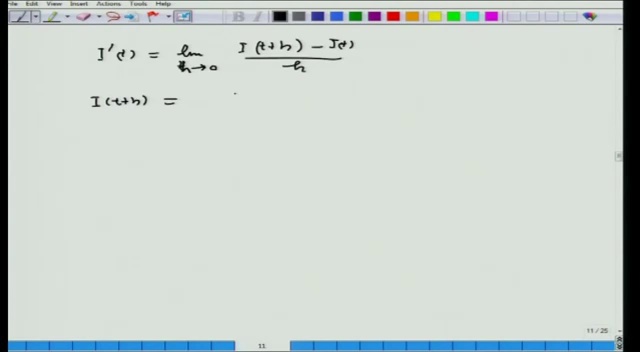 File Edit View Insert Actions Tools Help
I'(t) = lim h→0 I(t+h) - I(t) / h
I(t+h) =
11 / 25
11